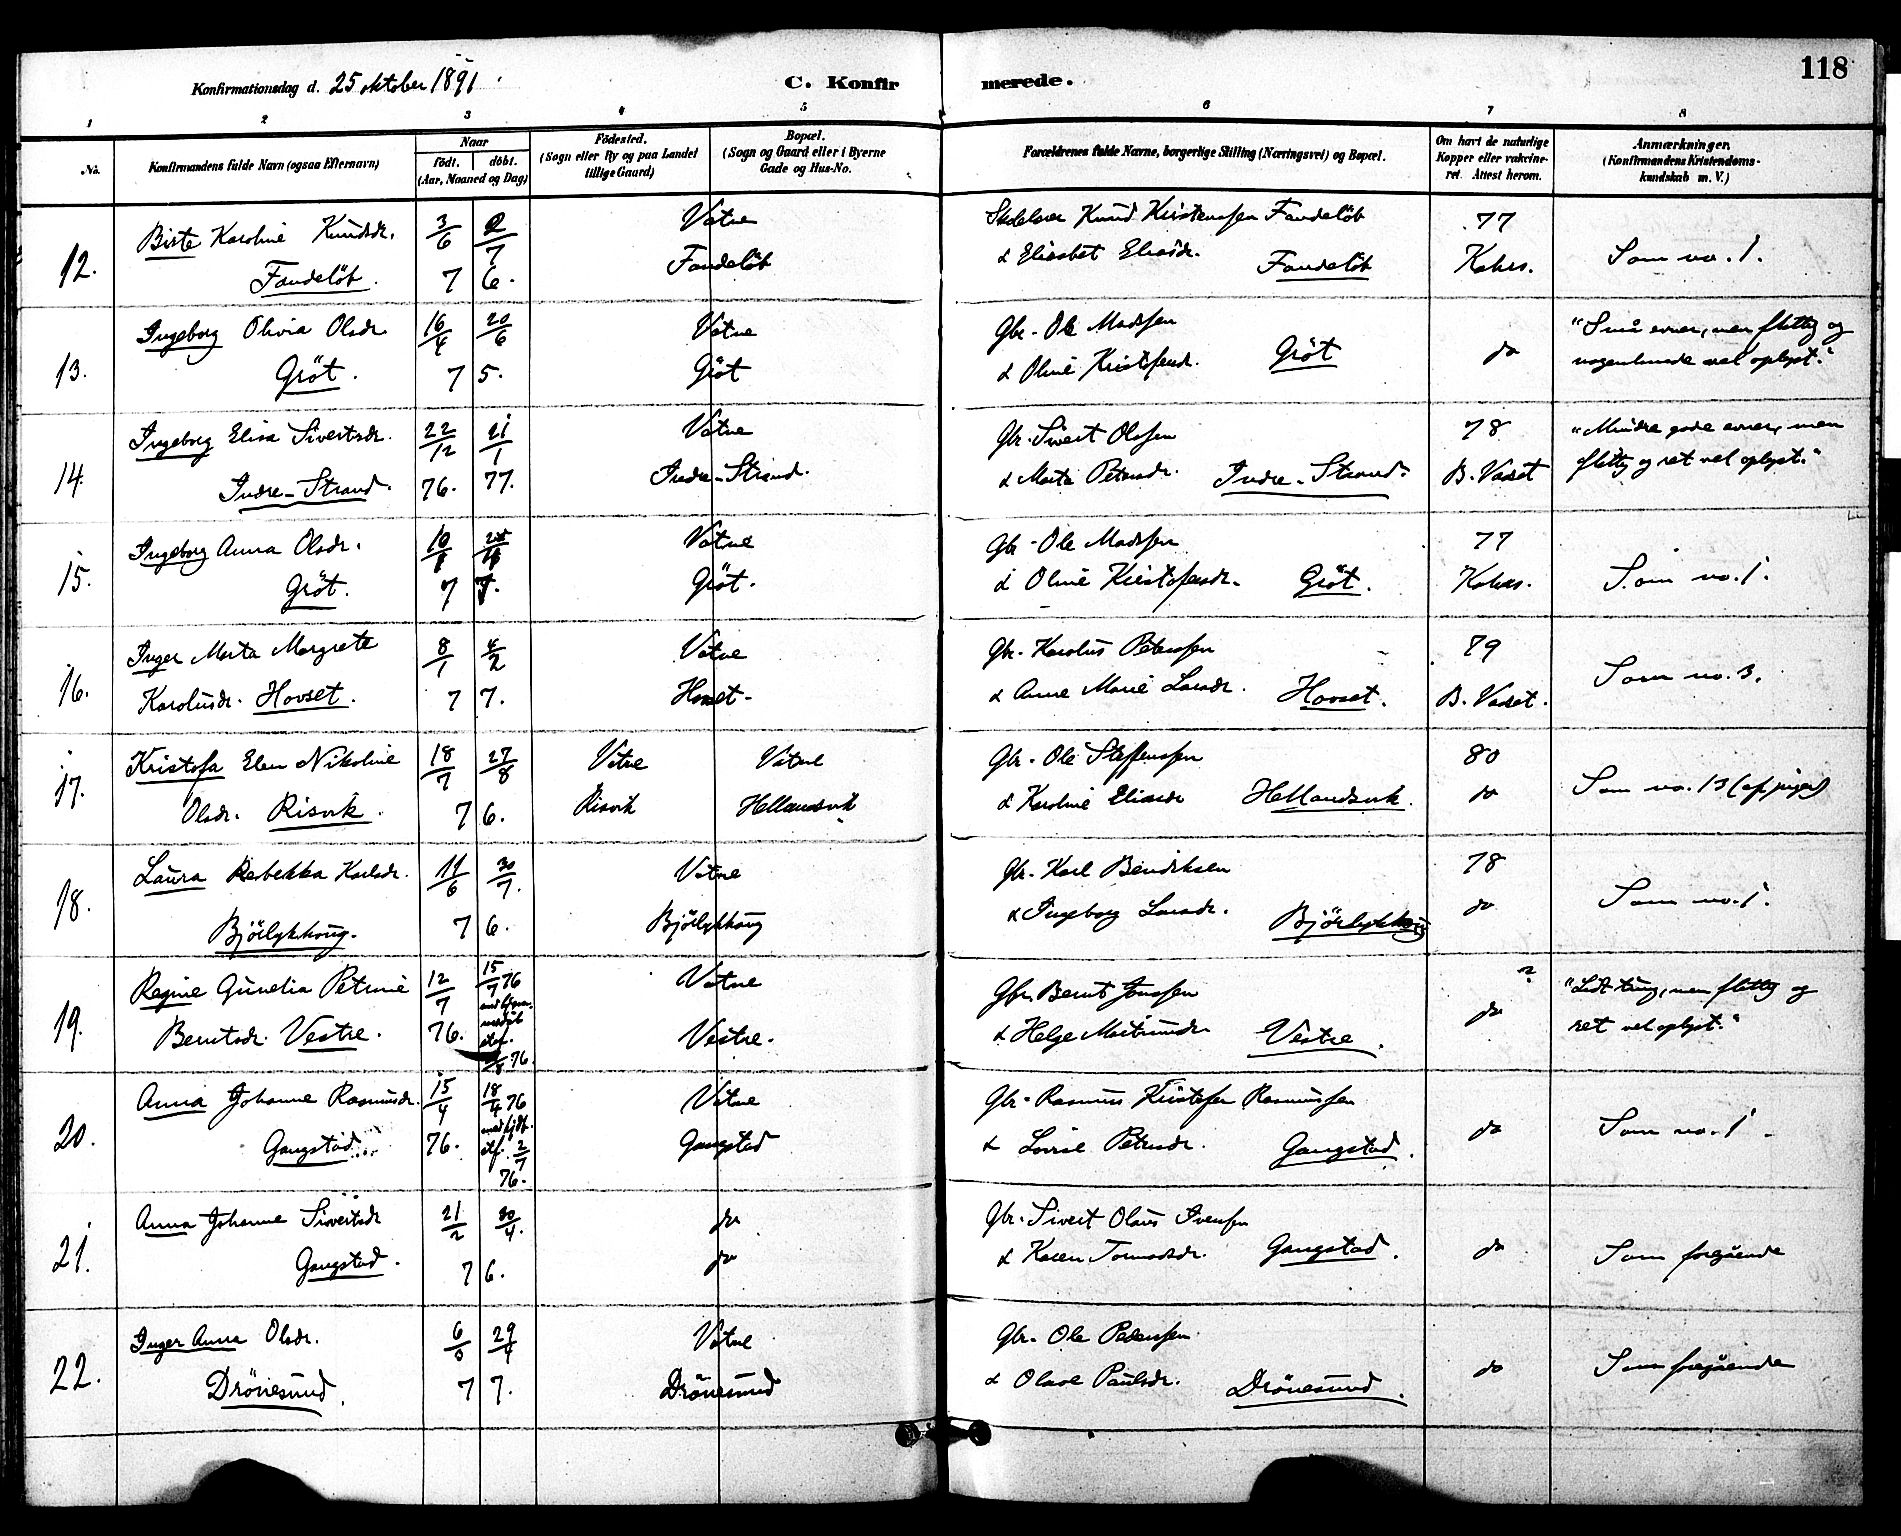 118
Konfirmationsdag d. 25 oktober 1891.
C. Konfir merede.
1 2 3 4 5 6 7 8
No.
Konfirmandens fulde Navn (ogsaa Efternavn)
Naar
födt. döbt.
(Aar, Maaned og Dag)
Födested.
(Sogn eller By og paa Landet
tillige Gaard)
Bopæl.
(Sogn og Gaard eller i Byerne
Gade og Hus-No.
Forældrenes fulde Navne, borgerlige Stilling (Næringsvei) og Bopæl.
Om havt de naturlige
Kopper eller vakcine-
ret. Attest herom.
Anmærkninger.
(Konfirmandens Kristendoms-
kundskab m. V.)
12. Birte Karoline Knudsdr. 3/6 2/7 Vatne Knud Kristensen Fandelöb 77
Fandelöb. 7 6. Fandelöb & Elisabet Eliasdr. Fandelöb Kahrs. Som no. 1.
13. Ingeborg Olivia Olsdr. 16/4 20/6 Vatne Gbr. Ole Madsen do "Små evner, men flittig og
Gröt. 7 5. Gröt & Oline Kristofersdr. Gröt nogenlunde vel oplyst."
14. Ingeborg Elisa Sivertsdr. 22/12 21/1 Vatne Gbr. Sivert Olsen 78 "Mindre gode evner, men
Indre-Strand. 76. 77. Indre-Strand. & Marta Petersdr. Indre-Strand. B. Vadset flittig og ret vel oplyst."
15. Ingeborg Anna Olsdr. 10/8 Vatne Gbr. Ole Madsen 77
Gröt. 7 7. Gröt. & Oline Kristofersdr. Gröt. Kahrs. Som no. 1.
16. Inger Marta Margrete 8/1 4/2 Vatne Gbr. Karolus Petersen 79
Karolusdr. Hovset. 7 7. Hovset. & Anne Marie Larsdr. Hovset. B. Vadset. Som no. 3.
17. Kristofa Elen Nikoline 18/7 27/8 Vatne Vatne Gbr. Ole Steffensen 80
Olsdr. Risvik. 7 6. Risvik Hellandsvik & Karoline Eliasdr Hellandsvik. do Som no. 13 (af piger)
18. Laura Rebekka Karlsdr. 11/6 30/7. Vatne Gbr. Karl Bendiksen 78
Björlykhoug. 7 6. Björlykhoug & Ingeborg Larsdr. Björlykhoug do Som no. 1.
19. Regine Gunelia Petrine 12/7 15/7 76 Vatne Gbr. Bernt Jonsen do ? "Lidt tung, men flittig og
Berntsdr. Vestre. 76. /8 76. Vestre. & Helge Martinusdr Vestre. ret vel oplyst."
20. Anna Johanne Rasmusdr. 15/4 18/4 76 Vatne Gbr. Rasmus Kristofer Rasmussen
Gangstad. 76. 2/7 76. Gangstad & Lovise Petersdr. Gangstad. do Som no. 1.
21. Anna Johanne Sivertsdr 21/2 30/4. do Gbr. Sivert Olaus Iversen
Gangstad. 7 6. do & Karen Tomasdr. Gangstad. do Som foregående
22. Inger Anna Olsdr. 29/4 Vatne Gbr. Ole Pedersen
Drönesund. 7 7. Drönesund & Olave Paulsdr. Drönesund. do Som foregående